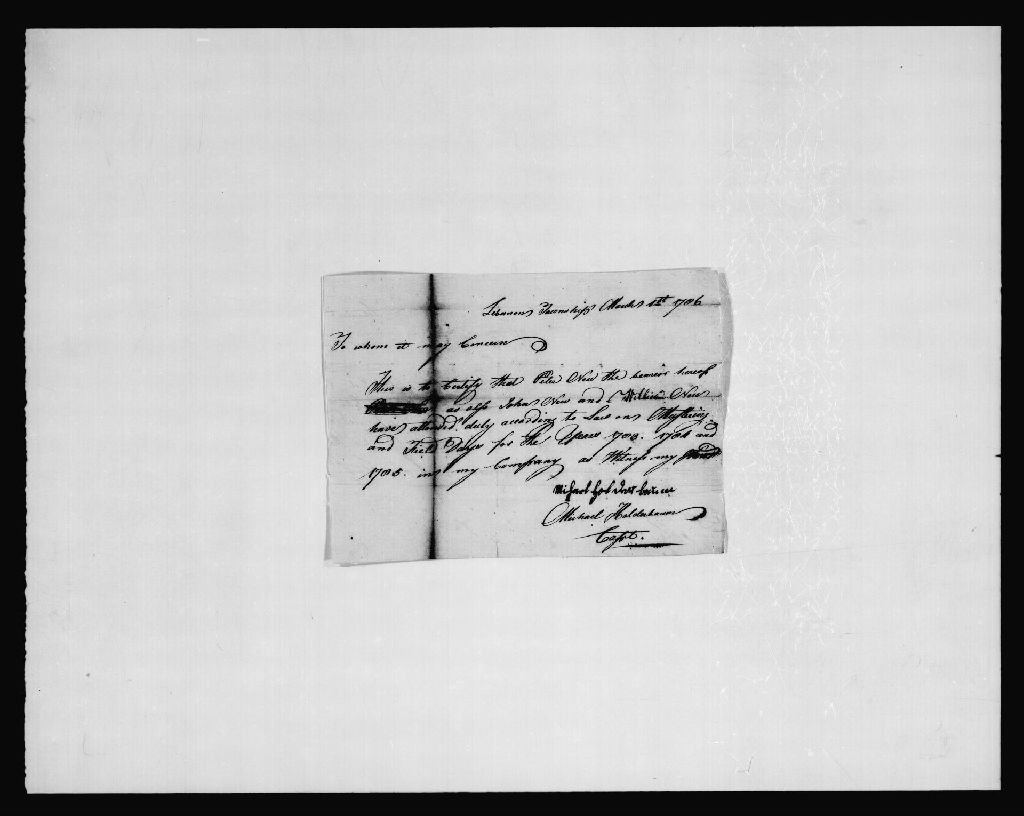 Lebanon Township March 1st 1786
To whom it may Concern
This is to Certify that Peter New the bearer hereof
as also John New and William New
have attended duly according to Law on Mustering
and Field Days for the Years 1783. 1784 and
1785. in my Company as Witness my hand
Michael Holderbaum
Capt.